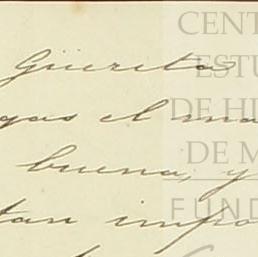 Güerita
gas el ma
buena, y
tan impo
CENT
ESTU
DE HI
DE M
FUND